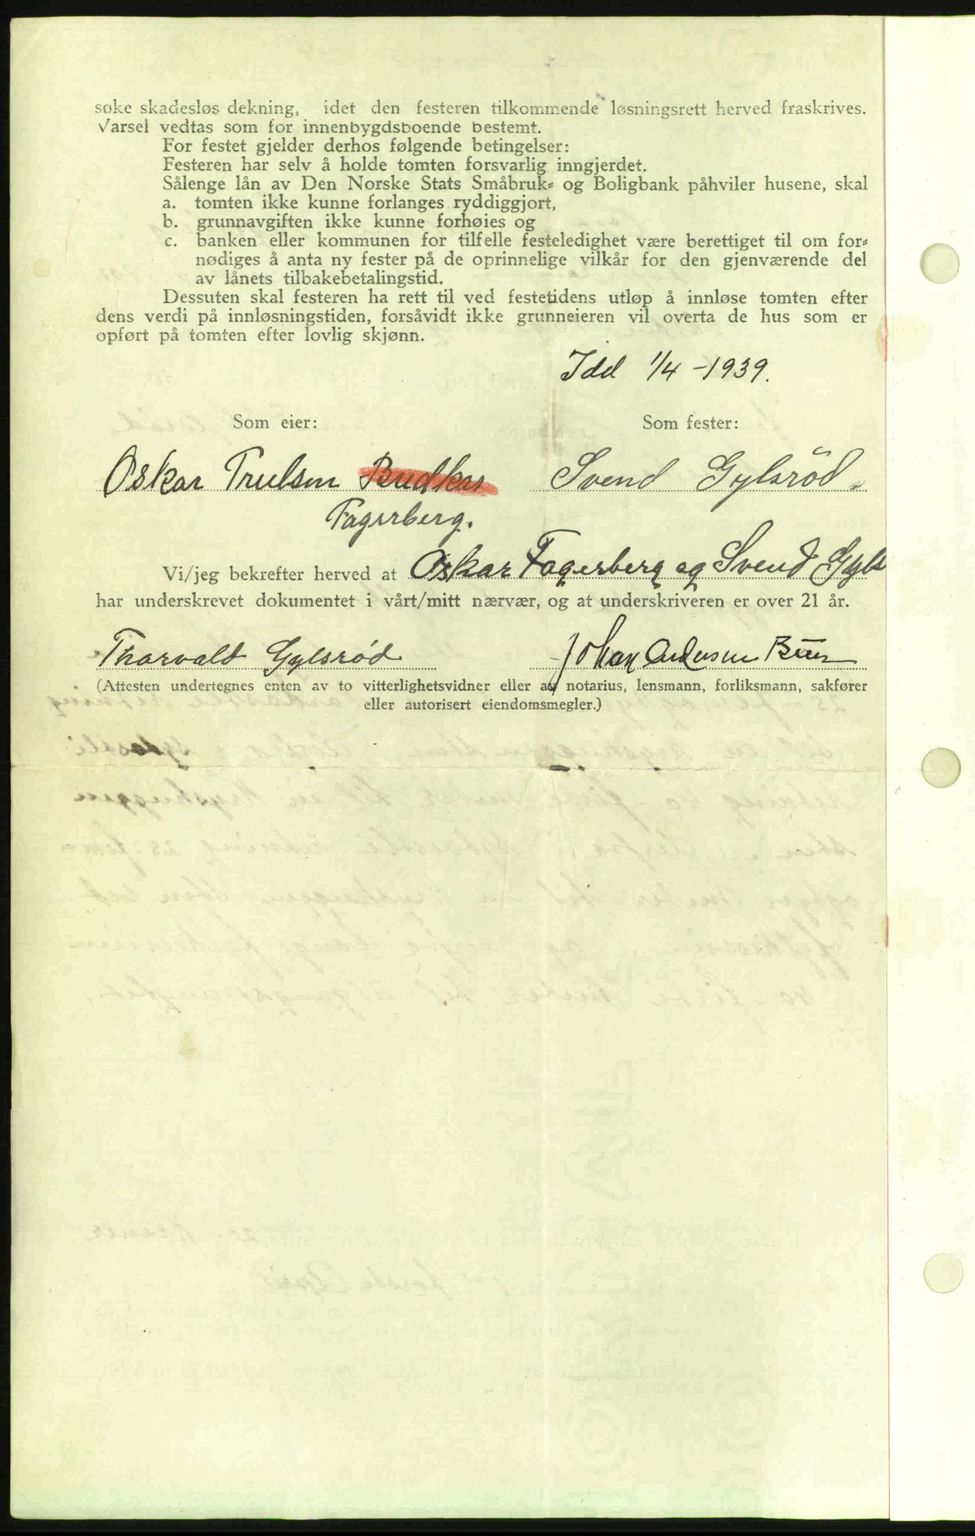 søke skadesløs dekning, idet den festeren tilkommende løsningsrett herved fraskrives.
Varsel vedtas som for innenbygdsboende bestemt.
For festet gjelder derhos følgende betingelser:
Festeren har selv å holde tomten forsvarlig inngjerdet.
Sålenge lån av Den Norske Stats Småbruk- og Boligbank påhviler husene, skal
a. tomten ikke kunne forlanges ryddiggjort,
b. grunnavgiften ikke kunne forhøies og
c. banken eller kommunen for tilfelle festeledighet være berettiget til om for-
nødiges å anta ny fester på de oprinnelige vilkår for den gjenværende del
av lånets tilbakebetalingstid.
Dessuten skal festeren ha rett til ved festetidens utløp å innløse tomten efter
dens verdi på innløsningstiden, forsåvidt ikke grunneieren vil overta de hus som er
opført på tomten efter lovlig skjønn.
Idd 1/4 -1939.
Som eier: Som fester:
Oskar Trulsen Budkas Svend Gylsrød
Fagerberg.
Vi/jeg bekrefter herved at Oskar Fagerberg og Svend Gyls
har underskrevet dokumentet i vårt/mitt nærvær, og at underskriveren er over 21 år.
Thorvald Gylsrød Johan Andersen
(Attesten undertegnes enten av to vitterlighetsvidner eller av notarius, lensmann, forliksmann, sakfører
eller autorisert eiendomsmegler.)